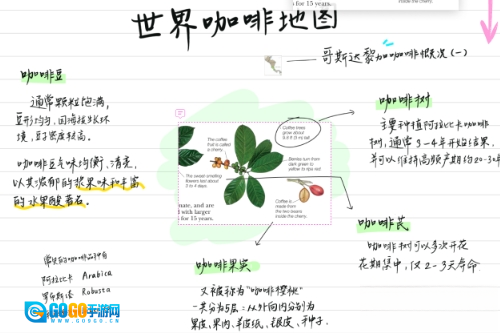 for 15 years.
世界咖啡地图
哥斯达黎加咖啡概况（一）
咖啡豆
通常颗粒饱满，
豆形均匀，因海拔生长环
境，豆子密度较高。
咖啡豆反味均衡、清远，
以其浓郁的浆果味和丰富
的水果酸著名。
咖啡树
主要种植阿拉比卡咖啡
树，通常3-4年开始结果，
并可以保持高频产期约20-30年
The coffee
that is called
a cherry.
Coffee trees
grow about
Berries turn from
dark green to
yellow to ripe red
The sweet smelling
flowers last about
3 to 4 days
Coffee is
made from
the two beans
inside the cherry.
nase, and are
d with larger
for 15 years.
咖啡花
咖啡树可以多次开花
花期集中，仅2-3天寿命
咖啡果实
又被称为"咖啡樱桃"
一共分为5层：从外向内分别为
果皮、果肉、羊皮纸、银皮、种子.
常见的咖啡品种有
阿拉比卡 Arabica
罗布斯塔 Robusta
GOGO手游网
WWW.GOGO.CN